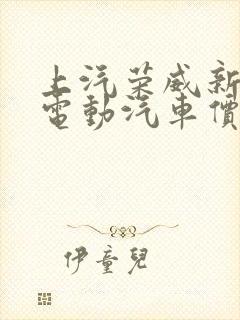 上汽荣威新
電動汽車價
伊童兒